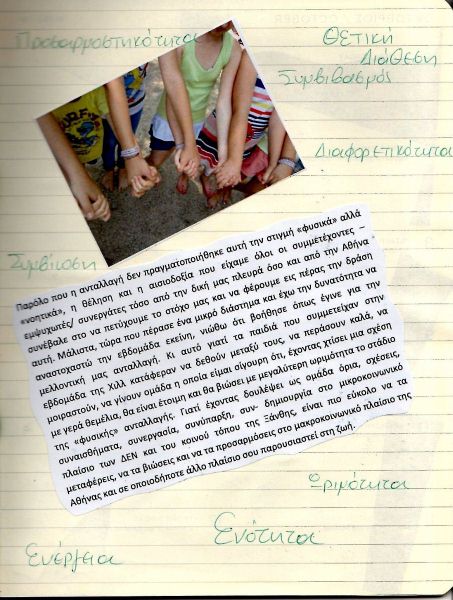 Προσαρμοστικότητα
Θετική
Διάθεση
Συμβιβασμός
Διαφορετικότητα
Συμβίωση
Παρόλο που η ανταλλαγή δεν πραγματοποιήθηκε αυτή την στιγμή «φυσικά» αλλά
«νοητικά», η θέληση και η αισιοδοξία που είχαμε όλοι οι συμμετέχοντες –
εμψυχωτές/ συνεργάτες τόσο από την δική μας πλευρά όσο και από την Αθήνα
συνέβαλε στο να πετύχουμε το στόχο μας και να φέρουμε εις πέρας την δράση
αυτή. Μάλιστα, τώρα που πέρασε ένα μικρό διάστημα και έχω την δυνατότητα να
αναστοχαστώ την εβδομάδα εκείνη, νιώθω ότι βοήθησε όπως έγινε για την
μελλοντική μας ανταλλαγή. Κι αυτό γιατί τα παιδιά που συμμετείχαν στην
εβδομάδα της Χιλλ κατάφεραν να δεθούν μεταξύ τους, να περάσουν καλά, να
μοιραστούν, να γίνουν ομάδα η οποία είμαι σίγουρη ότι, έχοντας χτίσει μια σχέση
με γερά θεμέλια, θα είναι έτοιμη και θα βιώσει με μεγαλύτερη ωριμότητα το στάδιο
της «φυσικής» ανταλλαγής. Γιατί έχοντας δουλέψει ως ομάδα όρια, σχέσεις,
συναισθήματα, συνεργασία, συνύπαρξη, συν- δημιουργία στο μικροκοινωνικό
πλαίσιο των ΔΕΝ και του κοινού τόπου της Ξάνθης, είναι πιο εύκολο να τα
μεταφέρεις, να τα βιώσεις και να τα προσαρμόσεις στο μακροκοινωνικό πλαίσιο της
Αθήνας και σε οποιοδήποτε άλλο πλαίσιο σου παρουσιαστεί στη ζωή.
Ωριμότητα
Ενότητα
Ενέργεια